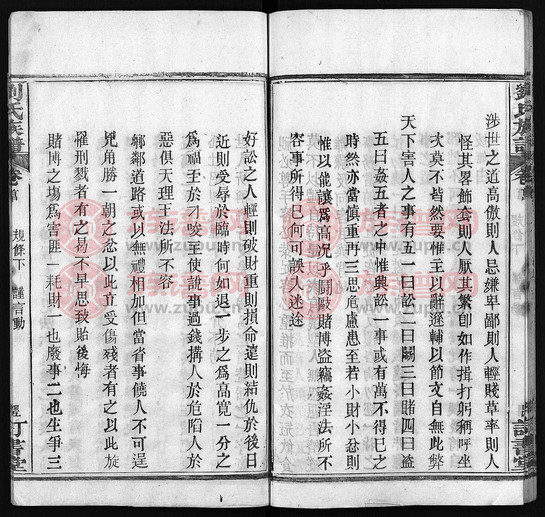 劉氏族譜
卷首
規條下
涉世之道高傲則人忌嫌卑鄙則人輕賤草率則人
怪其畧飾套則人厭其繁卽如作揖打躬稱呼坐
次莫不皆然要惟主以辭遜輔以節文自無此弊
天下害人之事有五一曰訟二曰鬭三曰賭四曰盜
五曰姦五者之中惟興訟一事或有萬不得巳之
時然亦當慎重再三思危慮患至若小財小忿則
惟以能讓爲高况乎鬪毆賭博盜竊姦淫法所不
容事所得巳何可誤入迷途
好訟之人輕則破財重則損命遠則結仇於後日
近則受辱於臨時何如退一步之爲高寬一分之
爲福至於刁唆主使說事過錢搆人於危陷人於
惡俱天理王法所不容
鄉鄰道路或以無禮相加但當省事饒人不可逞
兕角勝一朝之忿以此立受傷殘者有之以此旋
罹刑戮者有之曷不早思致貽後悔
賭博之塲爲害匪一耗財一也廢事二也生爭三
劉氏族譜
卷首
規條下
謹言動
訂書堂
族譜网
www.zupu.cn